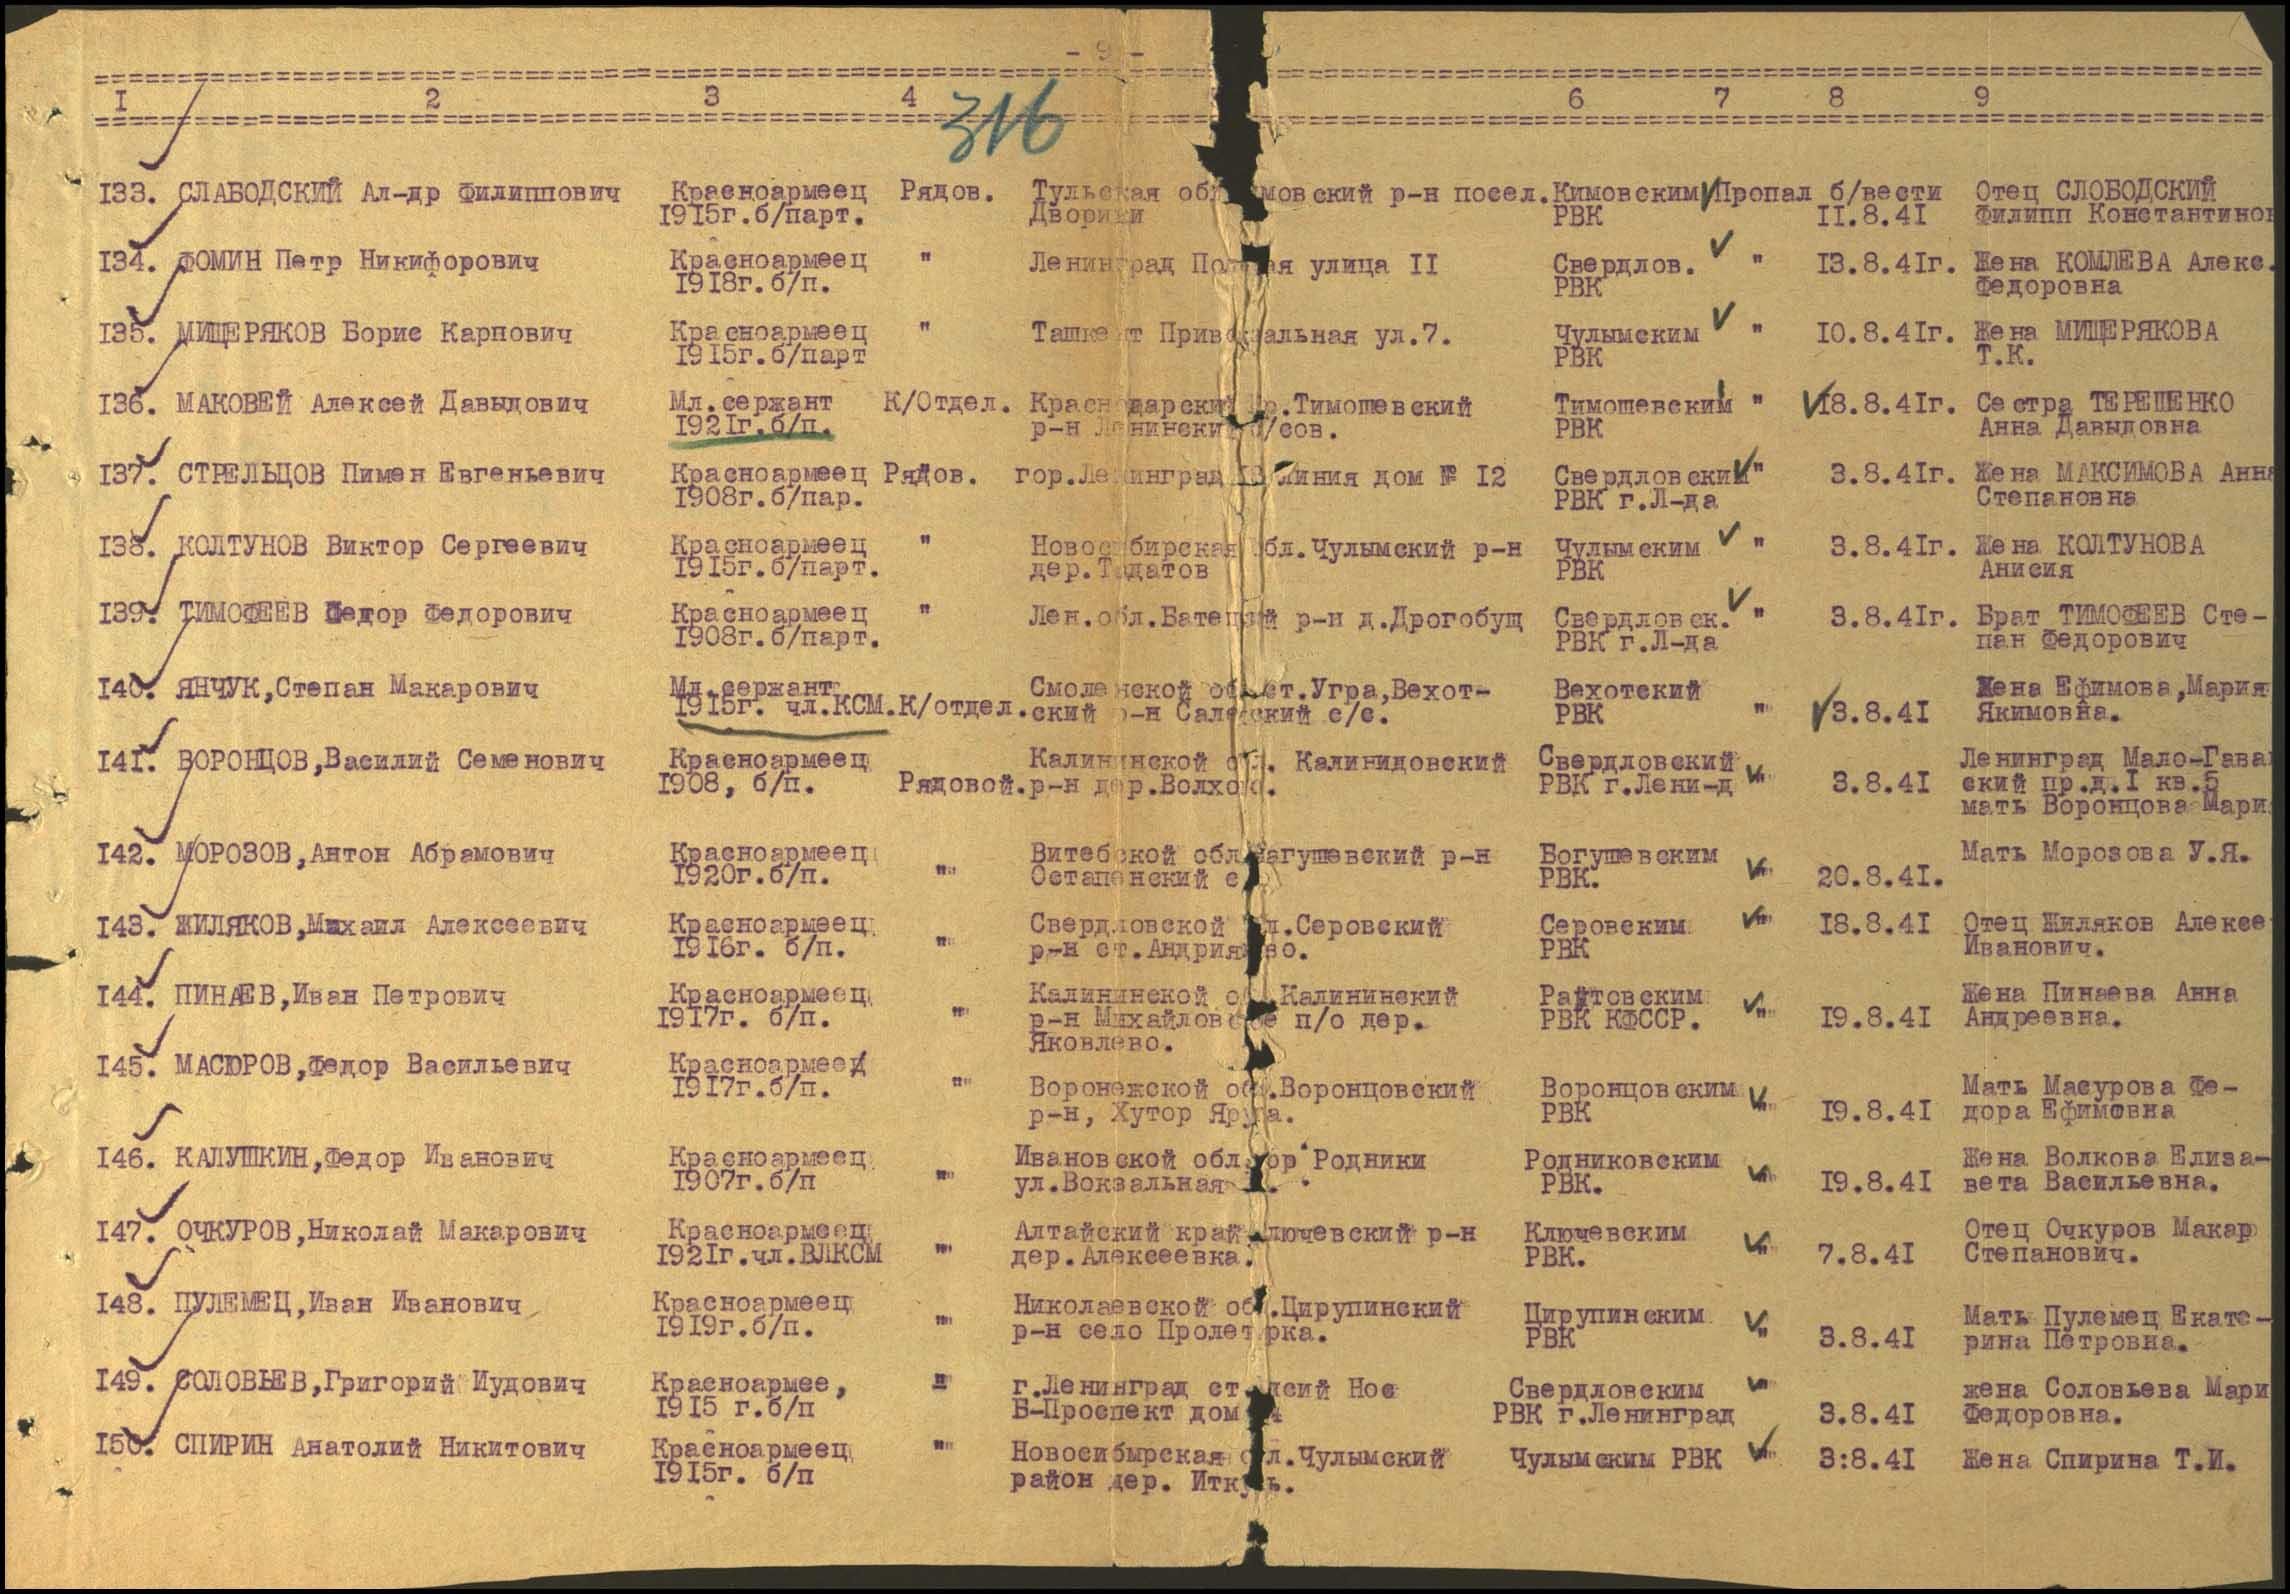 - 9 -
I 2 3 4 6 7 8 9
316
133. СЛАБОДСКИЙ Ал-др Филиппович Красноармеец Рядов. Тульская обл. мовский р-н посел. Кимовским Пропал б/вести Отец СЛОБОДСКИЙ
1915г.б/парт. Дворики РВК 11.8.41 Филипп Константинов
134. ФОМИН Петр Никифорович Красноармеец " Ленинград улица II Свердлов. " 13.8.41г. Жена КОМЛЕВА Алекс.
1918г.б/п. РВК Федоровна
135. МИЩЕРЯКОВ Борис Карпович Красноармеец " Ташкент Привокзальная ул.7. Чулымским " 10.8.41г. Жена МИЩЕРЯКОВА
1915г.б/парт РВК Т.К.
136. МАКОВЕЙ Алексей Давыдович Мл.сержант К/Отдел. Краснодарский кр.Тимошевский Тимошевским " 18.8.41г. Сестра ТЕРЕШЕНКО
1921г.б/п. р-н Ленинский с/сов. РВК Анна Давыдовна
137. СТРЕЛЬЦОВ Пимен Евгеньевич Красноармеец Рядов. гор.Ленинград линия дом № 12 Свердловский " 3.8.41г. Жена МАКСИМОВА Анна
1908г.б/пар. РВК г.Л-да Степановна
138. КОЛТУНОВ Виктор Сергеевич Красноармеец " Новосибирская обл.Чулымский р-н Чулымским " 3.8.41г. Жена КОЛТУНОВА
1915г.б/парт. дер. РВК Анисия
139. ТИМОФЕЕВ Федор Федорович Красноармеец " Лен.обл.Батецкий р-н д.Дрогобущ Свердловск. " 3.8.41г. Брат ТИМОФЕЕВ Сте-
1908г.б/парт. РВК г.Л-да пан Федорович
140. ЯНЧУК,Степан Макарович Мл.сержант Смоленской об. ст.Угра,Вехот- Вехотский Жена Ефимова,Мария
1915г. чл.КСМ. К/отдел. ский р-н с/с. РВК " 3.8.41 Якимовна.
141. ВОРОНЦОВ,Василий Семенович Красноармеец Калининской обл. Калинидовский Свердловский Ленинград Мало-Гаван
1908, б/п. Рядовой. р-н дер. РВК г.Лени-д " 3.8.41 ский пр.д.I кв.5
мать Воронцова Мари
142. МОРОЗОВ,Антон Абрамович Красноармеец Витебской обл. Багушевский р-н Богушевским Мать Морозова У.Я.
1920г.б/п. " Остапенский с РВК. " 20.8.41.
143. ЖИЛЯКОВ,Михаил Алексеевич Красноармеец Свердловской обл.Серовский Серовским " 18.8.41 Отец Жиляков Алексе
1916г. б/п. " р-н ст. РВК Иванович.
144. ПИНАЕВ,Иван Петрович Красноармеец Калининской обл.Калининский Райтовским Жена Пинаева Анна
1917г. б/п. " р-н Михайловское п/о дер. РВК КФССР. " 19.8.41 Андреевна.
Яковлево.
145. МАСЮРОВ,Федор Васильевич Красноармеец
1917г.б/п. " Воронежской обл.Воронцовский Воронцовским Мать Масурова Фе-
р-н, Хутор Яруга. РВК " 19.8.41 дора Ефимовна
146. КАЛУШКИН,Федор Иванович Красноармеец Ивановской обл.гор Родники Родниковским Жена Волкова Елиза-
1907г.б/п " ул.Вокзальная РВК. " 19.8.41 вета Васильевна.
147. ОЧКУРОВ,Николай Макарович Красноармеец Алтайский край Ключевский р-н Ключевским Отец Очкуров Макар
1921г.чл.ВЛКСМ " дер.Алексеевка. РВК. " 7.8.41 Степанович.
148. ПУЛЕМЕЦ,Иван Иванович Красноармеец Николаевской обл.Цирупинский Цирупинским Мать Пулемец Екате-
1919г.б/п. " р-н село Пролетарка. РВК " 3.8.41 рина Петровна.
149. СОЛОВЬЕВ,Григорий Иудович Красноармее, " г.Ленинград ст Нос Свердловским " жена Соловьева Мари
1915 г.б/п Б-Проспект дом РВК г.Ленинград 3.8.41 Федоровна.
150. СПИРИН Анатолий Никитович Красноармеец " Новосибырская обл.Чулымский Чулымским РВК " 3:8.41 Жена Спирина Т.И.
1915г. б/п район дер. Иткуль.